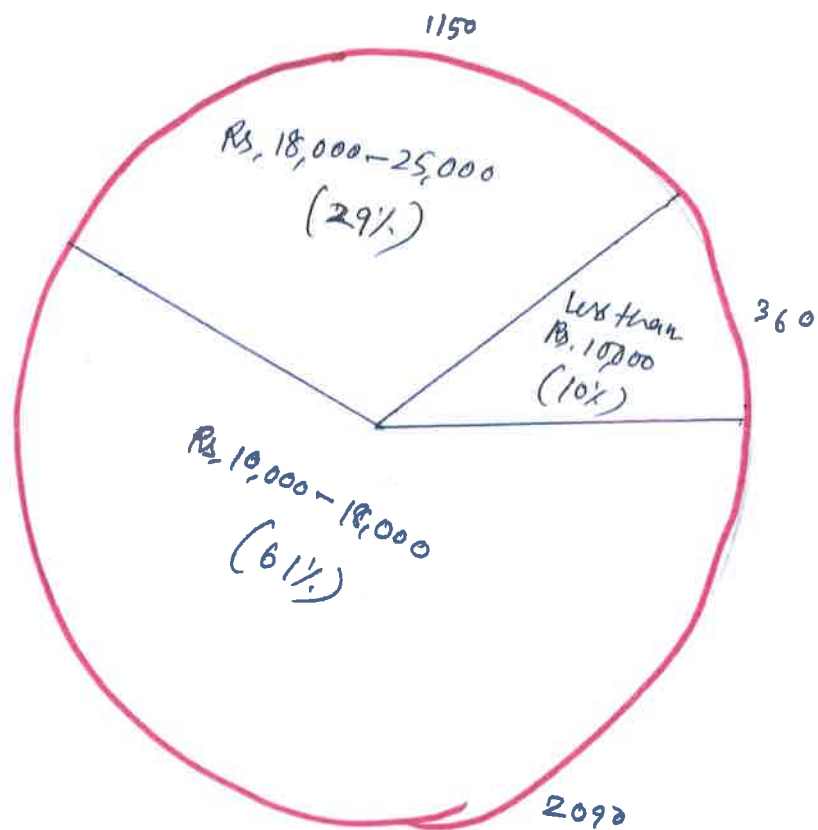 115°
Rs. 18,000-25,000
(29%)
Less than
Rs. 10,000
(10%)
36°
Rs. 10,000-18,000
(61%)
209°